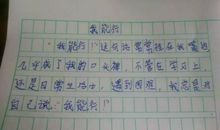 我能行
"我能行!"这句话常常挂在我嘴边
几乎成了我的口头禅,不管在学习上,
还是日常生活中,遇到困难,我总是对
自己说:"我能行!"